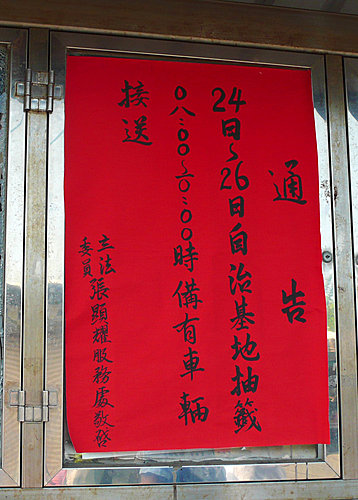 通告
24日~26日自治基地抽籤
〇八:〇〇~二〇:〇〇時備有車輛
接送
立法委員張顯耀服務處敬啓